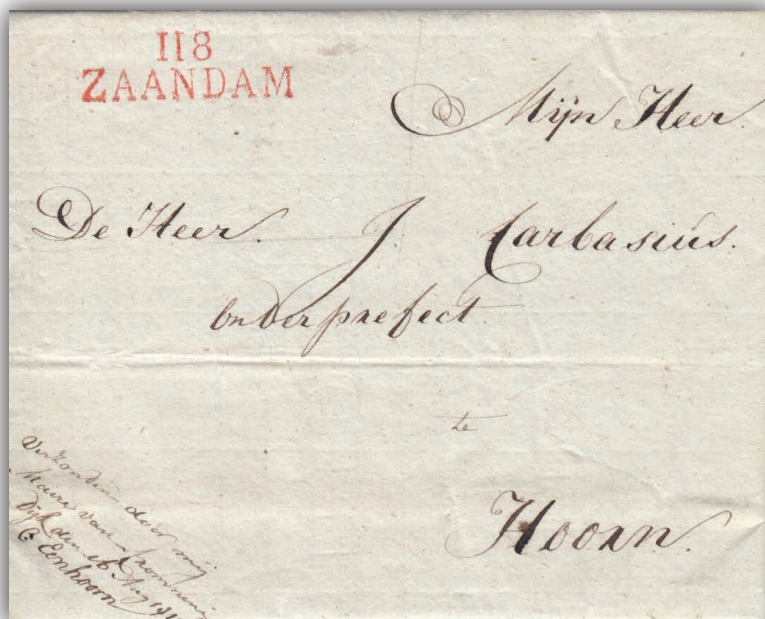 118
ZAANDAM
Mijn Heer.
De Heer. J. Carbasius.
onderprefect
te
Hoorn.
Verzonden door mij
Maire van
Dijk den 16 Aug 181
C: Eenhoorn